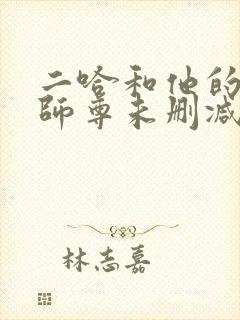 二哈和他的
师尊未删减
林志嘉